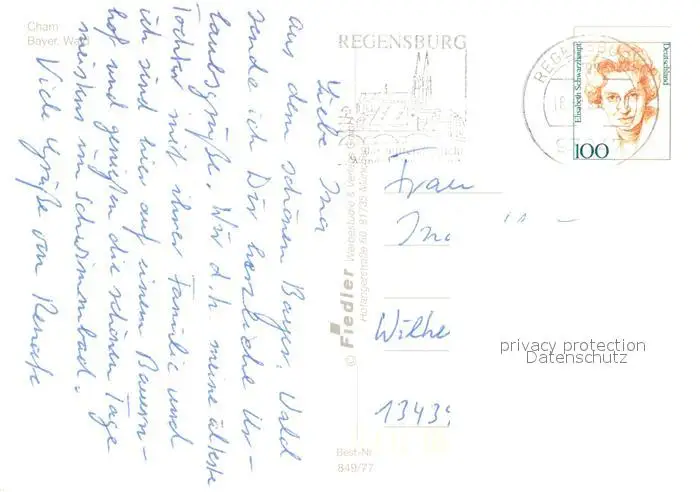 Cham
Bayer. Wald
Liebe Ina
aus dem schönen Bayer. Wald
sende ich Dir herzliche Ur-
laubsgrüße. Wir d.h. meine älteste
Tochter mit ihrer Familie und
ich sind hier auf einem Bauern-
hof und genießen die schönen Tage
meistens im Schwimmbad.
Viele Grüße von Renate
© Fiedler Werbestudio & Verlag
Hofangerstraße 69, 81735 München
Best-Nr.
849/77
REGENSBURG
REGENSBURG
Elisabeth Schwarzhaupt
Deutschland
100
Frau
Ina
Wilhe
13439
privacy protection
Datenschutz